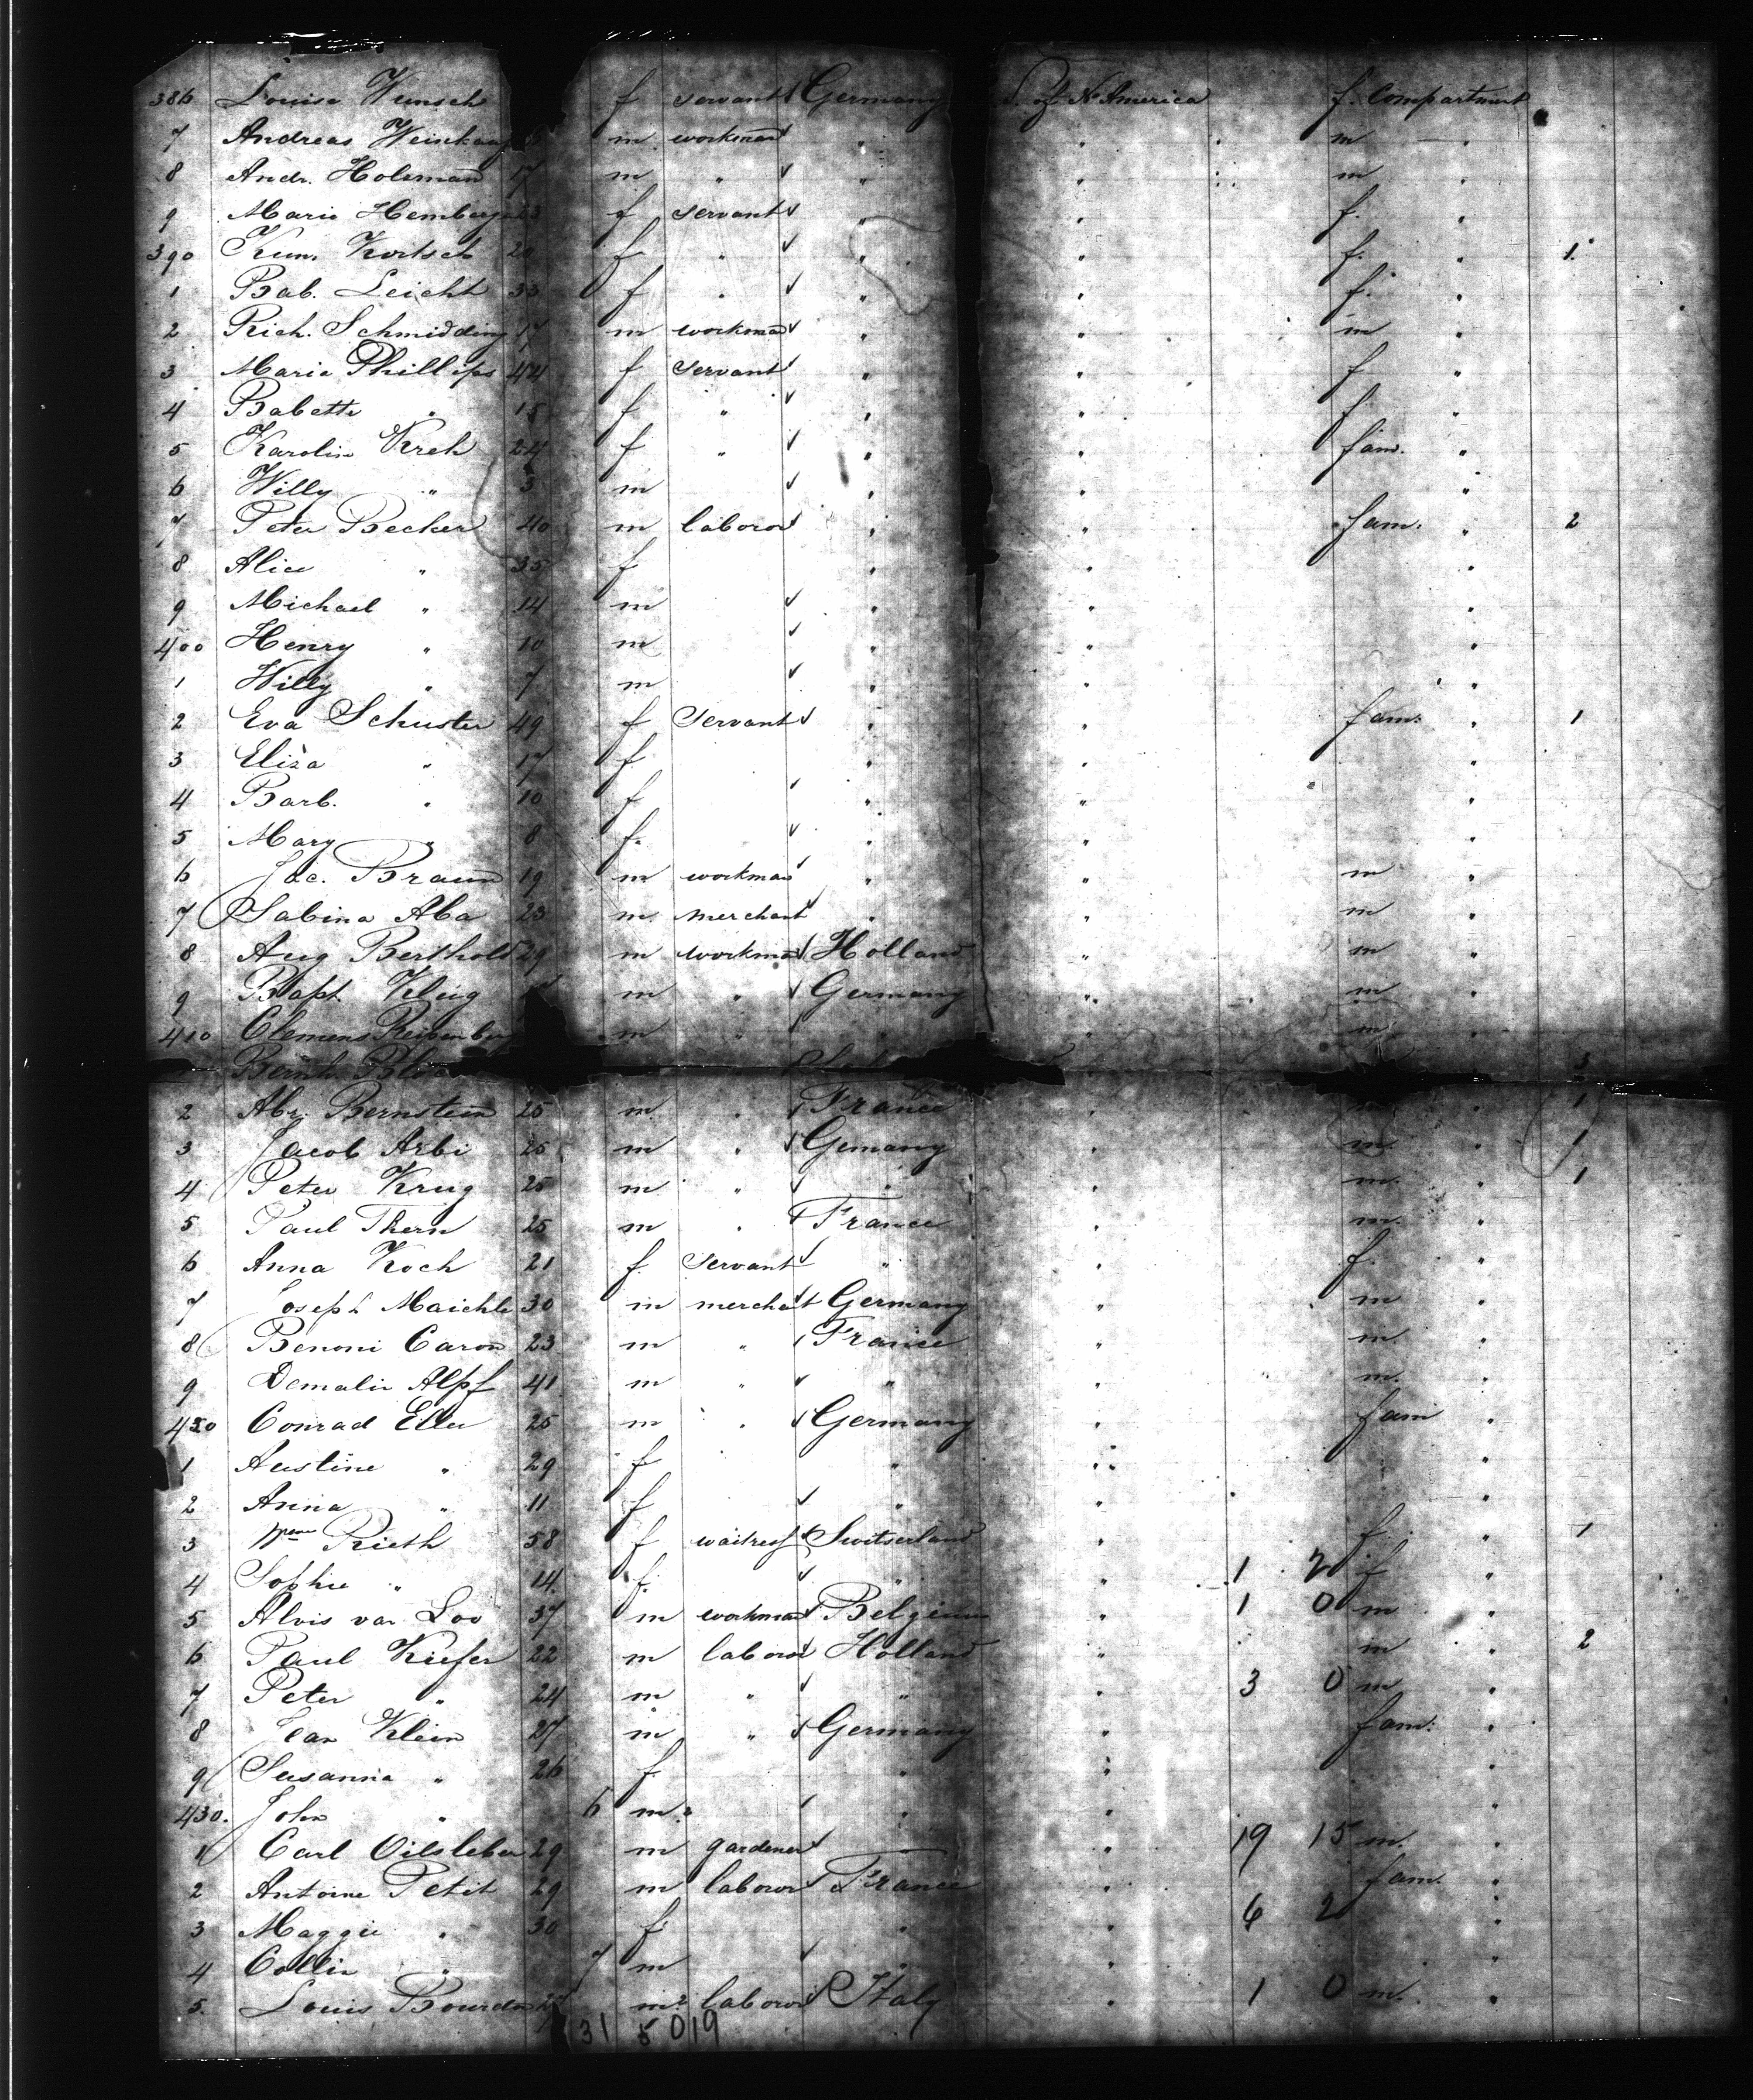 386 Louise Wunsch f servant Germany S. of N. America f. Compartment
7 Andreas m. workman " " m "
8 Andr. Holzman 17 m " " " m "
9 Marie 23 f servant " " f. "
390 Kun. Kortsch 20 f. " " " f. " 1.
1 Bab. Leicht 33 f " " " f. "
2 Rich. Schmidding 17 m workman " " m "
3 Marie Phillips 44 f servant " " f "
4 Babette " 15 f " " " f. "
5 Karolin Kreh 24 f " " " fam. "
6 Willy " 3 m " " "
7 Peter Becker 40 m laborer " " fam. " 2
8 Alice " 35 f " " "
9 Michael " 14 m " " "
400 Henry " 10 m " " "
1 Willy " 7 m " " "
2 Eva Schuster 49 f Servant " " fam. " 1
3 Eliza " 17 f " " "
4 Barb. " 10 f " " "
5 Mary " 8 f. " " "
6 Jac. Braun 19 m workman " " m "
7 Sabina Aba 23 m. merchant " " m "
8 Aug Berthold 29 m workman Holland " m "
9 Bapt m " Germany " m "
410 Clemens m " " m "
Bernh. 3
2 Abr. Bernstein 25 m " France " m " 1
3 Jacob Arbi 25 m " Gemany " m. " 1
4 Peter Krug 25 m " " " m. " 1
5 Paul Thern 25 m " France " m. "
6 Anna Koch 21 f. servant " " f. "
7 Joseph Maichle 30 m merchat Germany " m "
8 Benoni Caron 23 m " France " m. "
9 Demalin Alpf 41 m " " " m. "
420 Conrad Eller 25 m " Germany " fam "
1 Austine " 29 f " " "
2 Anna " 11 f " " "
3 Rieth 58 f waitress Switserland " f. " 1
4 Sophie " 14. f. " " 1 20 f "
5 Alvis van Loo 37 m workman Belgium " 1 0 m "
6 Paul Kiefer 22 m laborer Holland " m " 2
7 Peter " 24 m " " " 3 0 m "
8 Jean Klein 27 m " Germany " fam. "
9 Susanna " 26 f. " " "
430. John " 6 m. " " "
1 Carl Oilsleber 29 m gardener " 19 15 m. "
2 Antoine Petit 29 m laborer France " fam. "
3 Maggie " 30 f " " 6 2 "
4 Collin " 7 m " " "
5. Louis Bourdon m. laborer Italy " 1 0 m. "
31 5 019